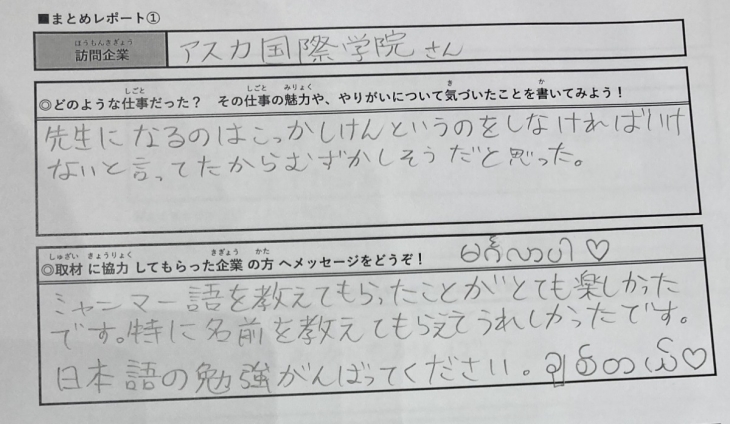 ■まとめレポート①
訪問企業 アスカ国際学院さん
◎どのような仕事だった？ その仕事の魅力や、やりがいについて気づいたことを書いてみよう！
先生になるのはこっかしけんというのをしなければいけ
ないと言ってたからむずかしそうだと思った。
◎取材に協力してもらった企業の方へメッセージをどうぞ！ မင်္ဂလာပါ♡
ミャンマー語を教えてもらったことがとても楽しかった
です。特に名前を教えてもらえてうれしかったです。
日本語の勉強がんばってください。 ချစ်တယ်♡